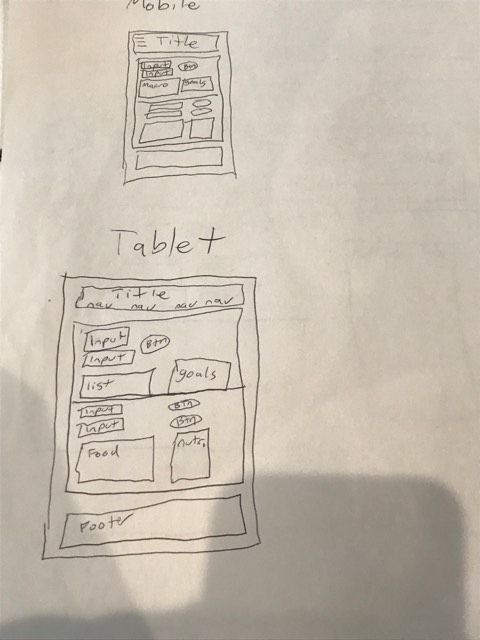 Mobile
Title
Input
Input Btn
Macro Goals
Tablet
Title
nav nav nav nav
Input
Btn
Input
list goals
Input Btn
Input Btn
Food nutr.
Footer